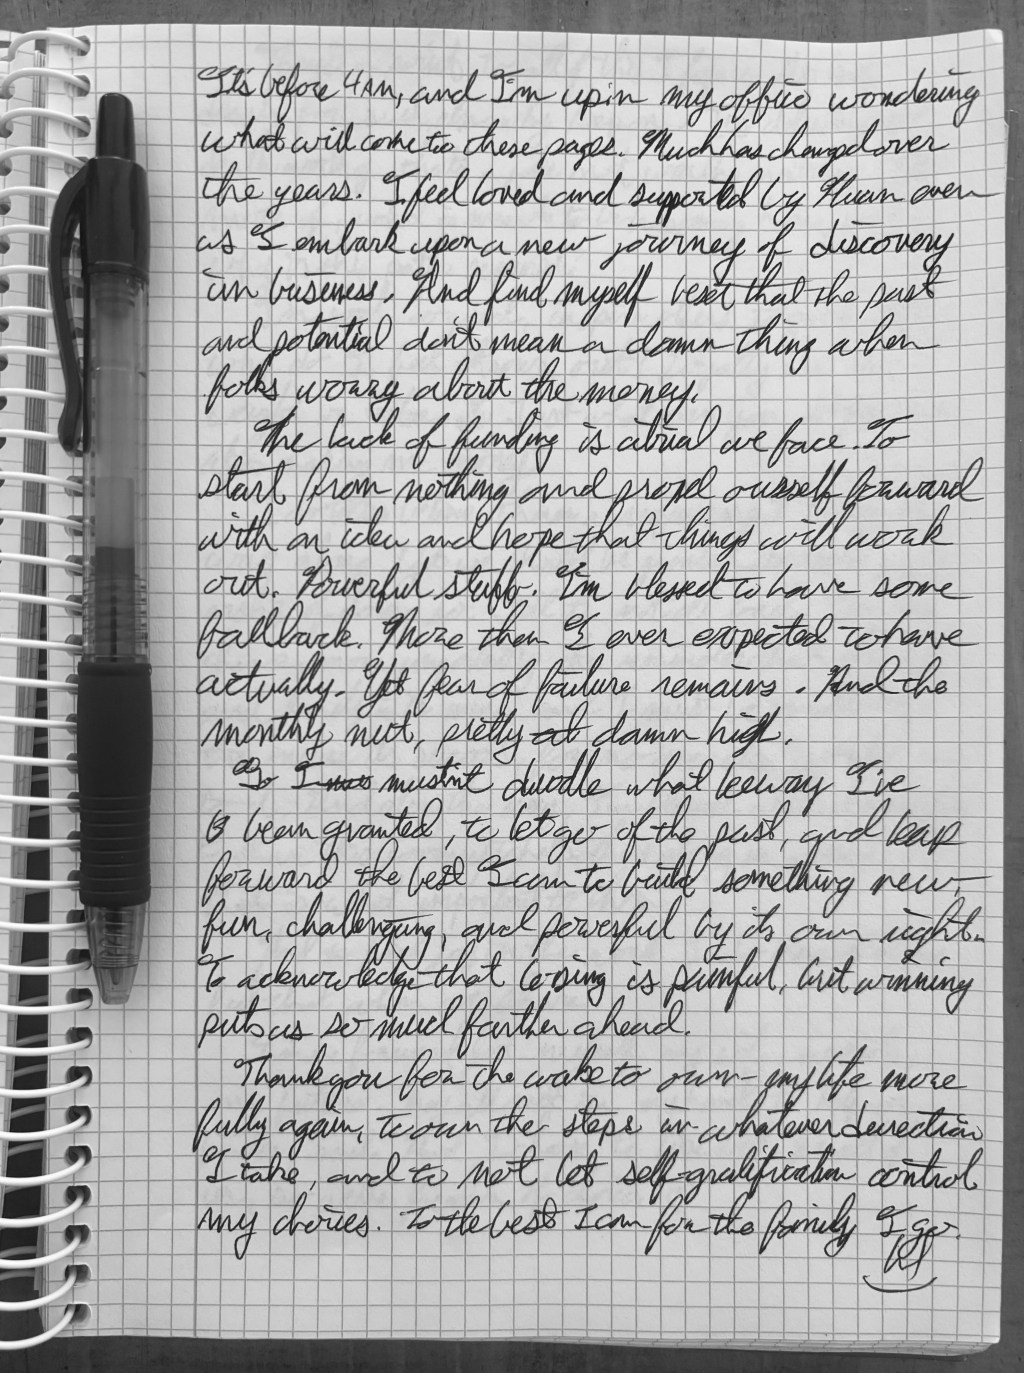 It's before 4AM, and I'm up in my office wondering
what will come to these pages. Much has changed over
the years. I feel loved and supported by even
as I embark upon a new journey of discovery
in business. And find myself that the past
and potential don't mean a damn thing when
folks worry about the money.
The lack of funding is we face. To
start from nothing and propel ourself forward
with an idea and hope that things will work
out. Powerful stuff. I'm blessed to have some
fallback. More then I ever expected to have
actually. Yet fear of failure remains. And the
monthly nut, pretty damn high.
I mustnt what leeway I've
been granted, to let go of the past, and leap
forward the best I can to build something new,
fun, challenging, and powerful by its own right.
To acknowledge that losing is painful, but winning
puts us so much farther ahead.
Thank you for the wake to own my life more
fully again, to own the steps in whatever direction
I take, and to not let self-gratification control
my choices. To the best I can for the family I go.